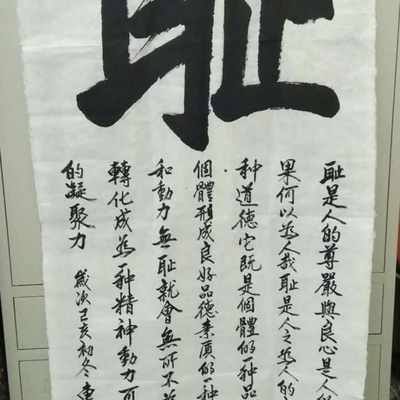 耻
耻是人的尊嚴與良心是人
果何以为人哉耻是人之为人的
种道德它既是個體的一种品
個體形成良好品德素质的一种
和動力無耻就會無所不
轉化成為一种精神動力可
的凝聚力
歲次己亥初冬